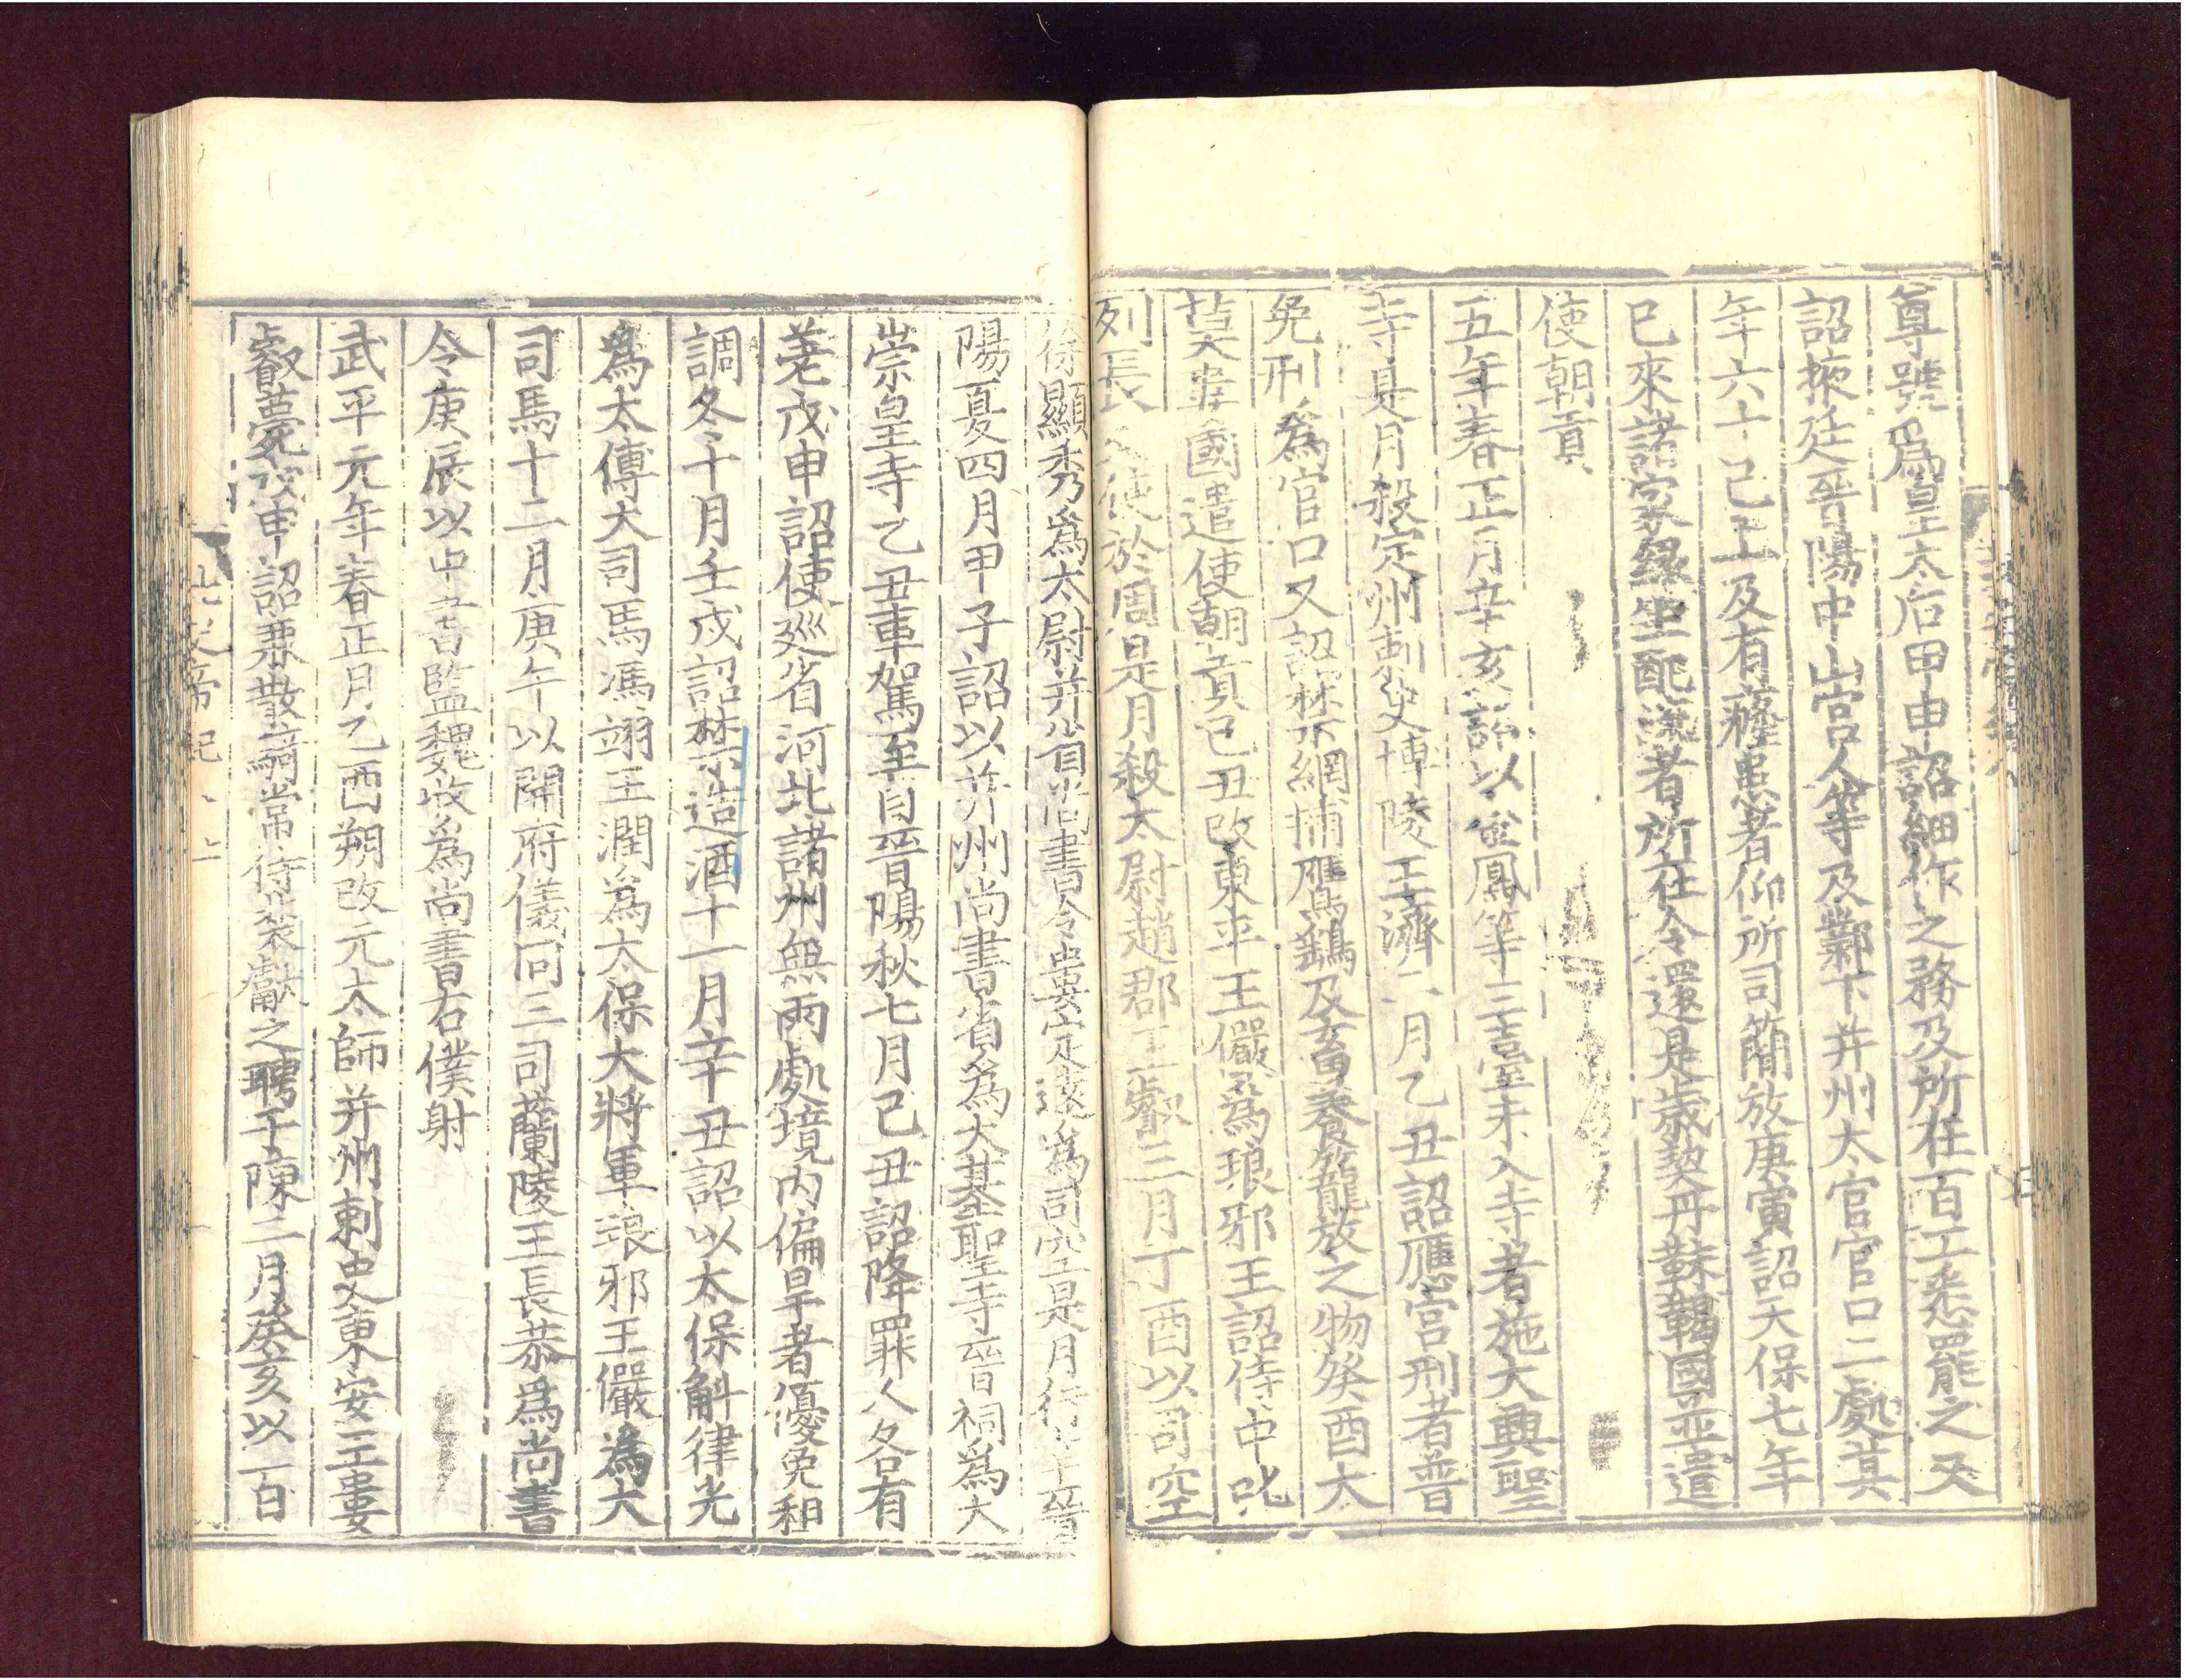 尊號爲皇太后甲申詔細作之務及所在百工悉罷之又
詔掖廷晉陽中山宮人等及鄴下并州太官官口二處其
年六十已上及有癃患者仰所司簡放庚寅詔天保七年
已來諸家緣坐配流者所在令還是歲契丹靺鞨國並遣
使朝貢
五年春正月辛亥詔以金鳳等三臺未入寺者施大興聖
寺是月殺定州刺史博陵王濟二月乙丑詔應宮刑者普
免刑爲官口又詔禁不網捕鷹鷂及畜養籠放之物癸酉大
莫婁國遣使朝貢己丑改東平王儼爲琅邪王詔侍中叱
列長乂使於周是月殺太尉趙郡王叡三月丁酉以司空
徐顯秀爲太尉并省尚書令婁定遠爲司空是月行幸晉
陽夏四月甲子詔以并州尚書省爲大基聖寺晉祠爲大
崇皇寺乙丑車駕至自晉陽秋七月己丑詔降罪人各有
差戊申詔使巡省河北諸州無雨處境內偏旱者優免租
調冬十月壬戌詔禁不造酒十一月辛丑詔以太保斛律光
爲太傅大司馬馮翊王潤爲太保大將軍琅邪王儼爲大
司馬十二月庚午以開府儀同三司蘭陵王長恭爲尚書
令庚辰以中書監魏收爲尚書右僕射
武平元年春正月乙酉朔改元太師并州刺史東安王婁
叡薨戊申詔兼散騎常侍裴獻之聘于陳二月癸亥以百
北齊帝紀八上